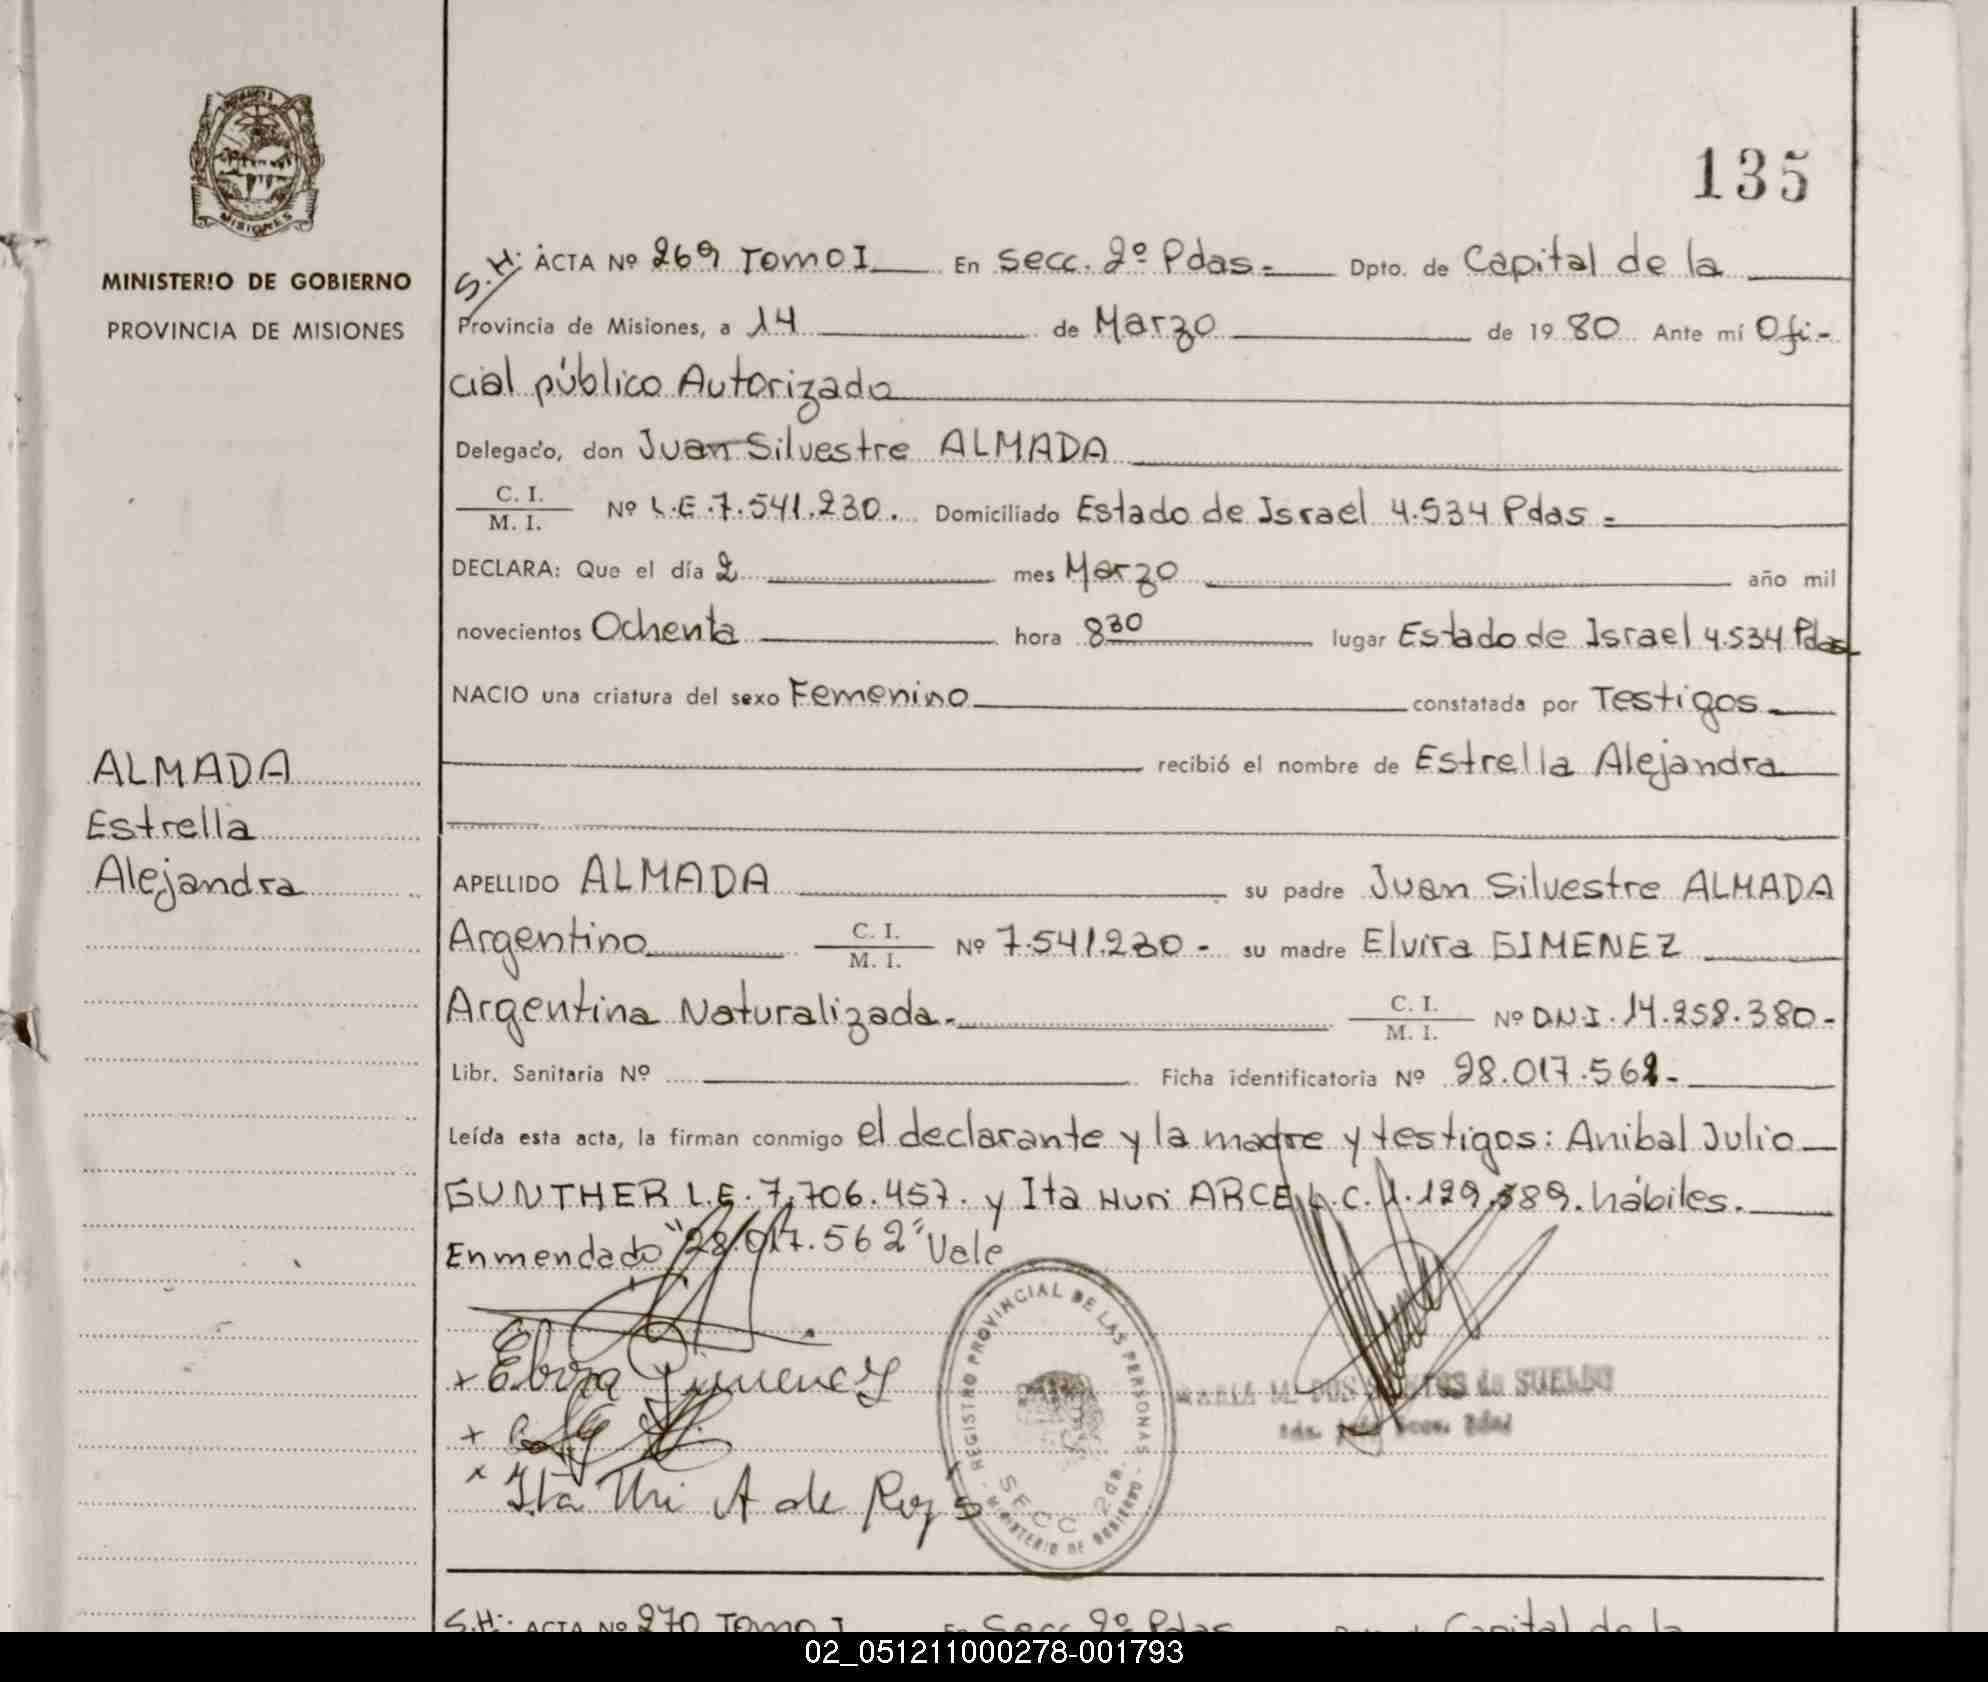 135
MISIONES
MINISTERIO DE GOBIERNO
PROVINCIA DE MISIONES
S.H: ACTA Nº 269 Tomo I En Secc. 2º Pdas.- Dpto. de Capital de la
Provincia de Misiones, a 14 de Marzo de 1980 Ante mí Ofi-
cial público Autorizado
Delegado, don Juan Silvestre ALMADA
C. I.
M. I. Nº L.E.7.541.230. Domiciliado Estado de Israel 4.534 Pdas-
DECLARA: Que el día 2 mes Marzo año mil
novecientos Ochenta hora 8 30 lugar Estado de Israel 4.534 Pdas
NACIO una criatura del sexo Femenino constatada por Testigos
recibió el nombre de Estrella Alejandra
ALMADA
Estrella
Alejandra
APELLIDO ALMADA su padre Juan Silvestre ALMADA
Argentino C. I. M. I. Nº 7.541.230- su madre Elvira GIMENEZ
Argentina Naturalizada.- C. I. M. I. Nº D.N.I. 14.258.380-
Libr. Sanitaria Nº Ficha identificatoria Nº 28.017.562-
Leída esta acta, la firman conmigo el declarante y la madre y testigos: Anibal Julio
GUNTHER L.E. 7.706.457. y Ita Huri ARCE L.C. 1.129.389. hábiles.
Enmendado "28.017.562" Vale
+ Elvira Jimenez
+
x Ita A de
REGISTRO PROVINCIAL DE LAS PERSONAS
SECC 2da.
- MINISTERIO DE GOBIERNO -
MARIA M. DOS SANTOS de SUELDO
S.H:. ACTA Nº 270 Tomo I En Secc 2º Pdas Dpto. de Capital de la
02_051211000278-001793